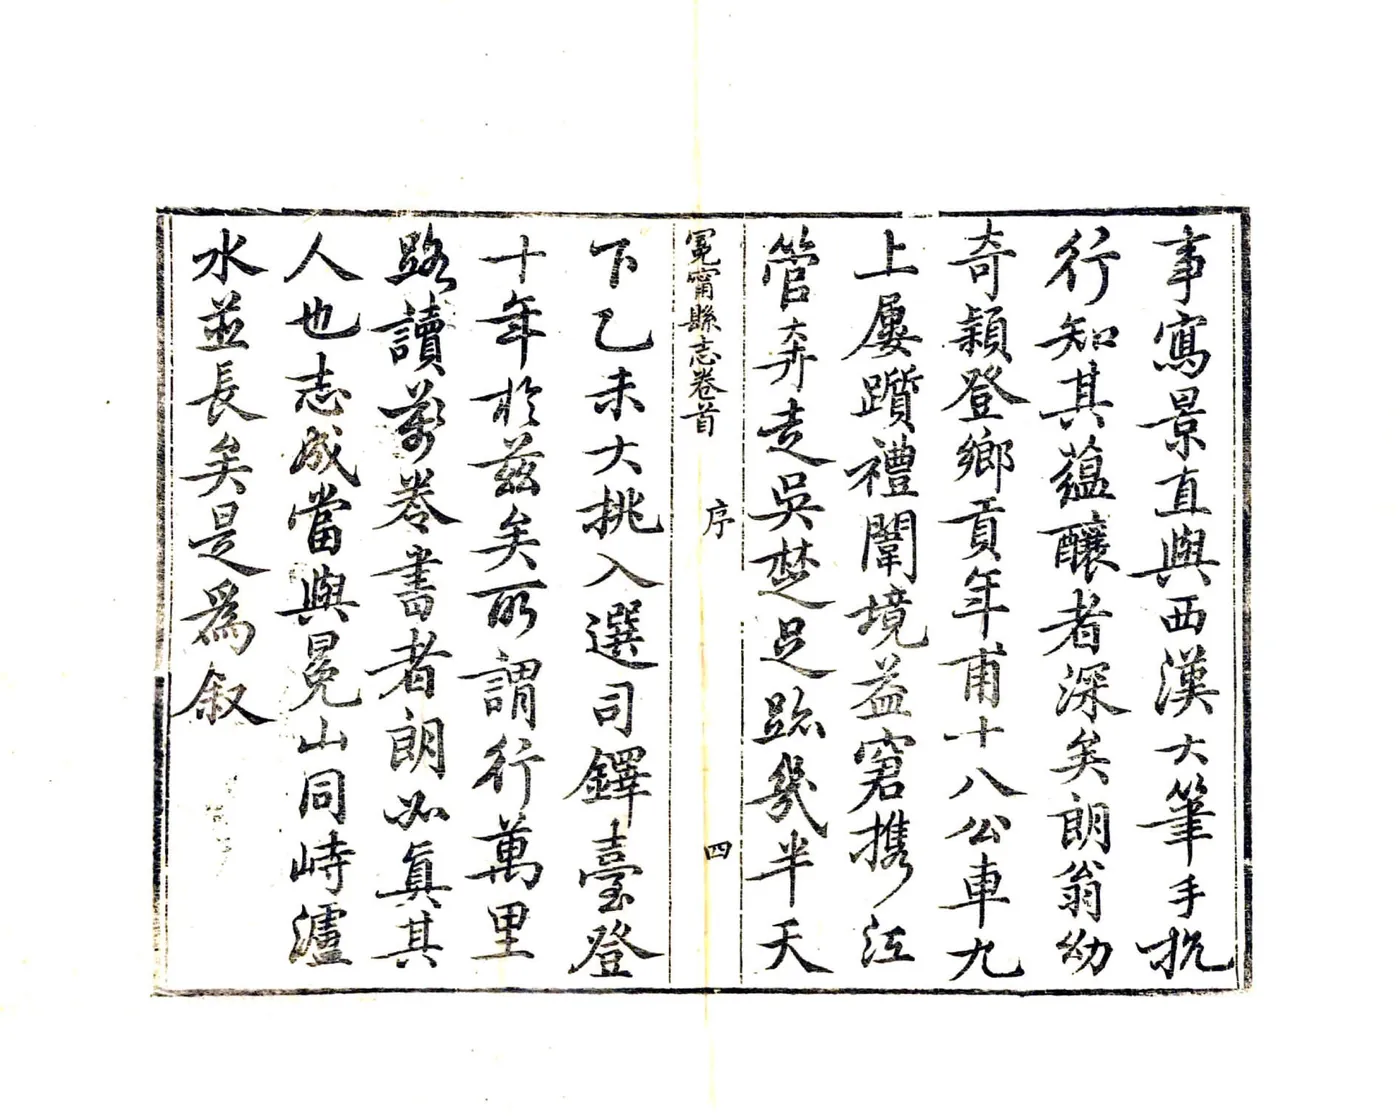 事寫景直與西漢大筆手抗
行知其蘊釀者深矣朗翁幼
奇穎登鄉貢年甫十八公車九
上屢躓禮闈境益窘携江
管奔走吳楚足跡幾半天
冕甯縣志卷首 序 四
下乙未大挑入選司鐸臺登
十年於兹矣所謂行萬里
路讀萬卷書者朗如眞其
人也志成當與冕山同峙瀘
水並長矣是爲叙